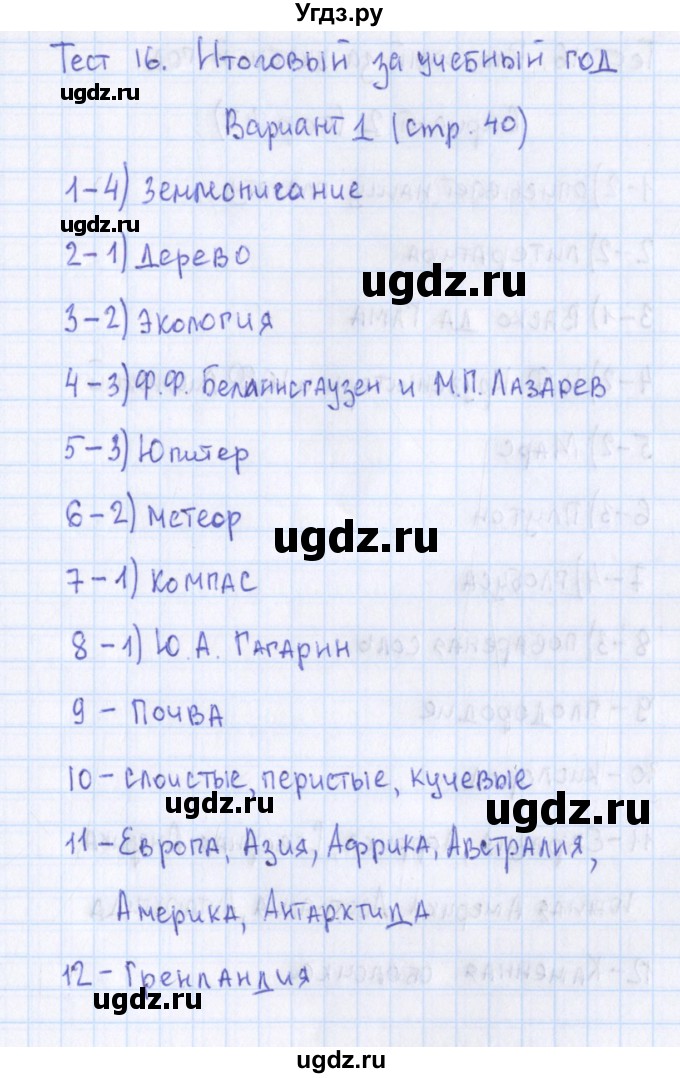 Угдз.ру
Тест 16. Итоговый за учебный год
ugdz.ru
Вариант 1 (стр. 40)
1-4) Землеописание
ugdz.ru
2-1) Дерево
ugdz.ru
3-2) Экология
4-3) Ф.Ф. Беллинсгаузен и М.П. Лазарев
5-3) Юпитер
6-2) Метеор
ugdz.ru
7-1) Компас
8-1) Ю.А. Гагарин
9 - Почва
10 - слоистые, перистые, кучевые
ugdz.ru
ugdz.ru
11 - Европа, Азия, Африка, Австралия,
Америка, Антарктида
12 - Гренландия
ugdz.ru
ugdz.ru